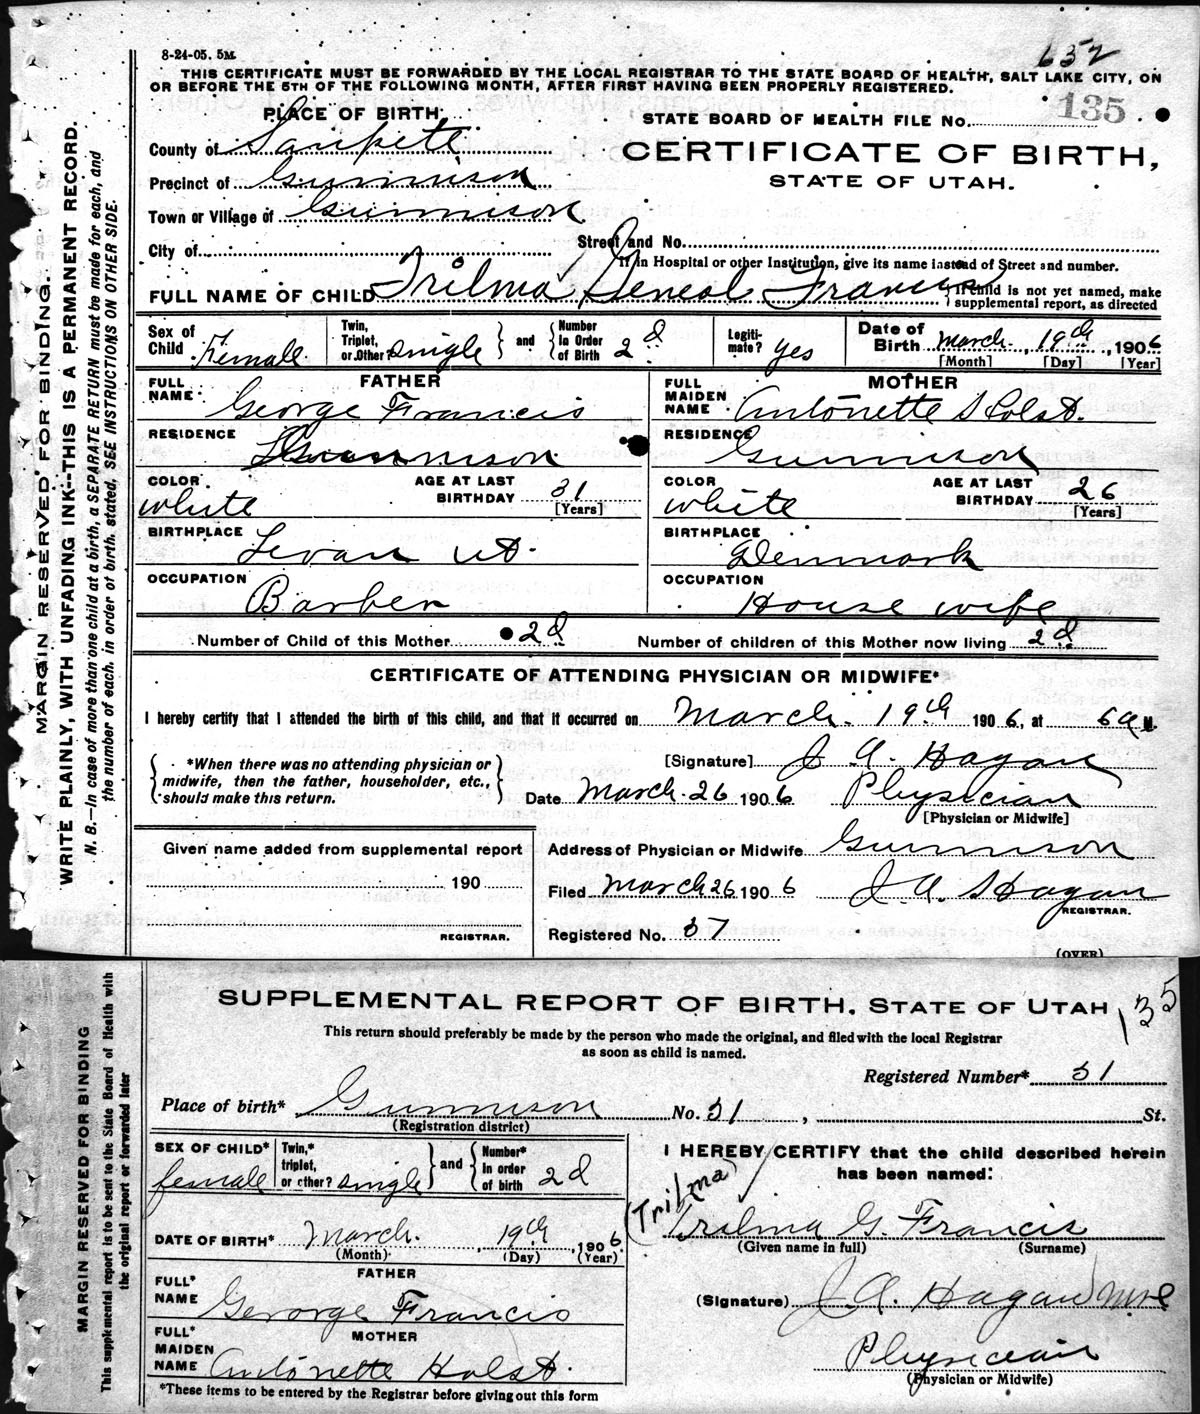 652
8-24-05. 5M.
THIS CERTIFICATE MUST BE FORWARDED BY THE LOCAL REGISTRAR TO THE STATE BOARD OF HEALTH, SALT LAKE CITY, ON
OR BEFORE THE 5TH OF THE FOLLOWING MONTH, AFTER FIRST HAVING BEEN PROPERLY REGISTERED.
PLACE OF BIRTH
STATE BOARD OF HEALTH FILE No. 135
County of Sanpete
CERTIFICATE OF BIRTH,
STATE OF UTAH.
Precinct of Gunnison
Town or Village of Gunnison
City of
Street and No.
If in Hospital or other Institution, give its name instead of Street and number.
FULL NAME OF CHILD Trilma Geneal Francis
If child is not yet named, make
supplemental report, as directed
Sex of Child Female
Twin, Triplet, or Other? single
and
Number In Order of Birth 2d
Legitimate? yes
Date of Birth March 19th, 1906
[Month] [Day] [Year]
FATHER
FULL NAME George Francis
RESIDENCE Gunnison
COLOR white
AGE AT LAST BIRTHDAY 31
[Years]
BIRTHPLACE Levan Ut.
OCCUPATION Barber
MOTHER
FULL MAIDEN NAME Antonette Holst.
RESIDENCE Gunnison
COLOR white
AGE AT LAST BIRTHDAY 26
[Years]
BIRTHPLACE Denmark
OCCUPATION House wife
Number of Child of this Mother 2d
Number of children of this Mother now living 2d
CERTIFICATE OF ATTENDING PHYSICIAN OR MIDWIFE*
I hereby certify that I attended the birth of this child, and that it occurred on March 19th 1906, at 6 a M.
*When there was no attending physician or
midwife, then the father, householder, etc.,
should make this return.
[Signature] J A. Hagan
Date March 26 1906 Physician
[Physician or Midwife]
Given name added from supplemental report
190
REGISTRAR.
Address of Physician or Midwife Gunnison
Filed March 26 1906 J. A. Hagan
REGISTRAR.
Registered No. 37
(OVER)
MARGIN RESERVED FOR BINDING.
WRITE PLAINLY, WITH UNFADING INK--THIS IS A PERMANENT RECORD.
N. B.—In case of more than one child at a birth, a SEPARATE RETURN must be made for each, and
the number of each, in order of birth, stated, SEE INSTRUCTIONS ON OTHER SIDE.
SUPPLEMENTAL REPORT OF BIRTH, STATE OF UTAH
135
This return should preferably be made by the person who made the original, and filed with the local Registrar
as soon as child is named.
Registered Number* 31
Place of birth* Gunnison No. 31, St.
(Registration district)
SEX OF CHILD* female
Twin,* triplet, or other? single
and
Number* in order of birth 2d
DATE OF BIRTH* March. 19th, 1906
(Month) (Day) (Year)
FATHER
FULL* NAME George Francis
MOTHER
FULL* MAIDEN NAME Antonette Holst.
*These items to be entered by the Registrar before giving out this form
I HEREBY CERTIFY that the child described herein
has been named:
(Trilma)
Trilma G. Francis
(Given name in full) (Surname)
(Signature) J. A. Hagan
Physician
(Physician or Midwife)
MARGIN RESERVED FOR BINDING
This supplemental report is to be sent to the State Board of Health with
the original report or forwarded later